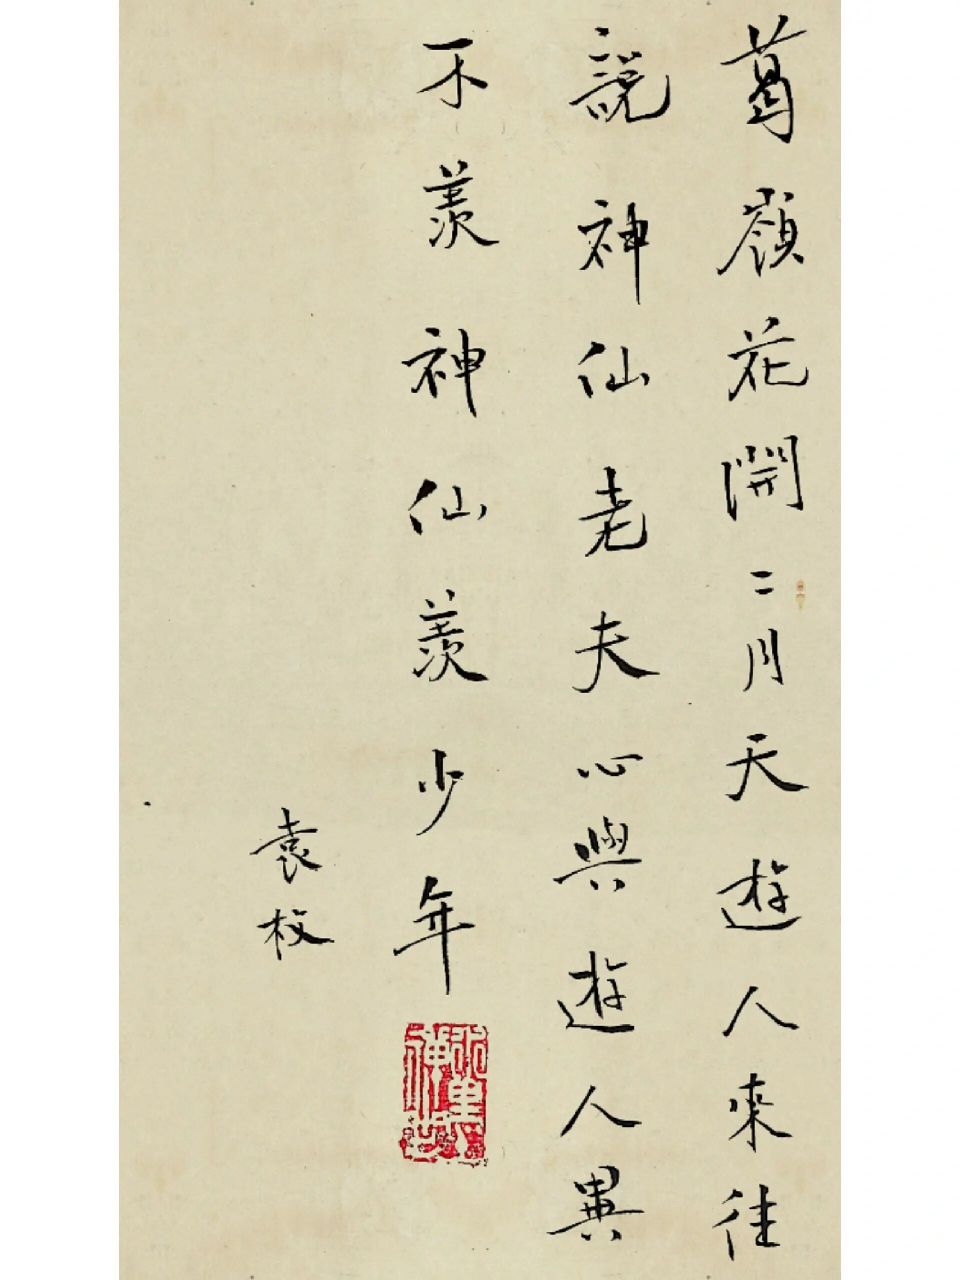 葛嶺花開二月天遊人來往
說神仙老夫心與遊人異
不羨神仙羨少年
袁枚